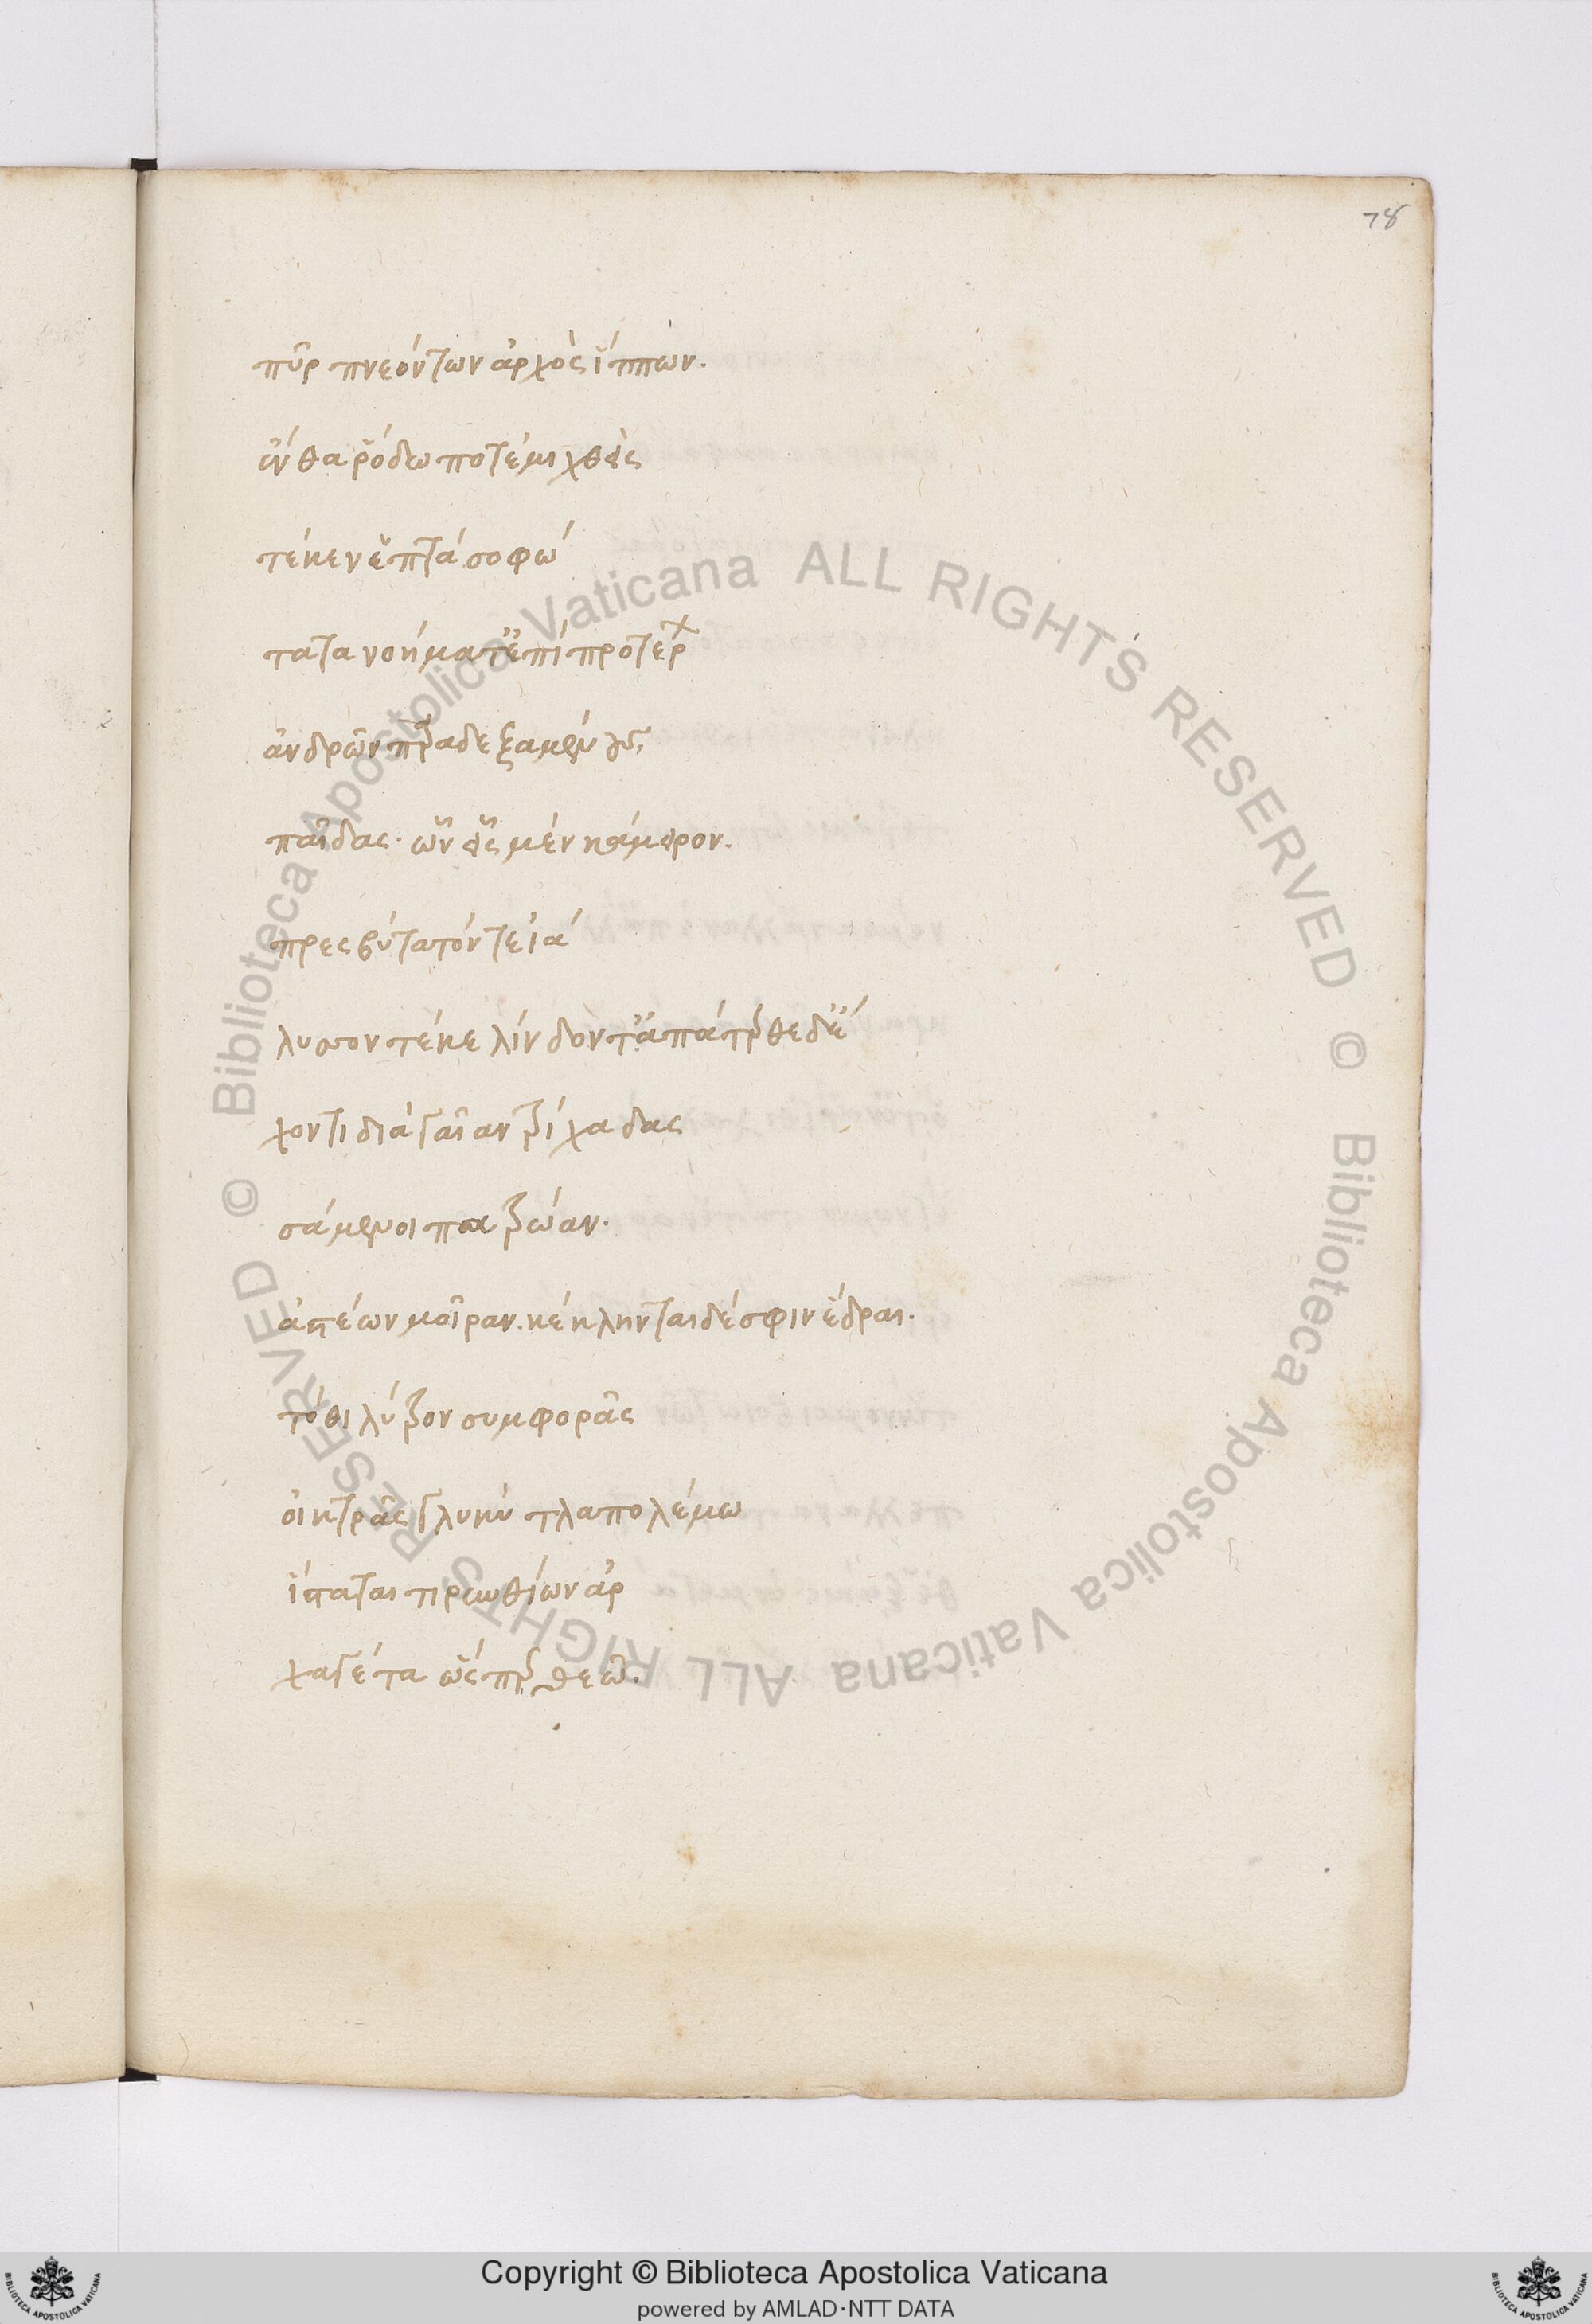 78
πῦρ πνεόντων ἀρχὸς ἵππων.
ἔνθα ῥόδω ποτέ μιχθεὶς
τέκεν ἑπτά σοφώ
τατα νοήματ' ἐπὶ προτέρ
ἀνδρῶν παραδεξαμένους
παῖδας. ὧν εἷς μέν κάμειρον.
πρεσβύτατόν τε ἰά
λυσον τέκε λίνδον τ' ἀπάτερθε δ' ἔ
χοντι διὰ γαῖαν τρίχα δας
σάμενοι πατρώαν.
ἀστέων μοῖραν. κέκληνται δέ σφιν ἕδραι.
τόθι λύτρον συμφορᾶς
οἰκτρᾶς γλυκὺ τλαπολέμω
ἵσταται τιρωθίων ἀρ
χαγέτα ὥςπερ θεῶ.
Copyright © Biblioteca Apostolica Vaticana
powered by AMLAD·NTT DATA
© Biblioteca Apostolica Vaticana ALL RIGHTS RESERVED
© Biblioteca Apostolica Vaticana ALL RIGHTS RESERVED
BIBLIOTECA APOSTOLICA VATICANA
BIBLIOTECA APOSTOLICA VATICANA